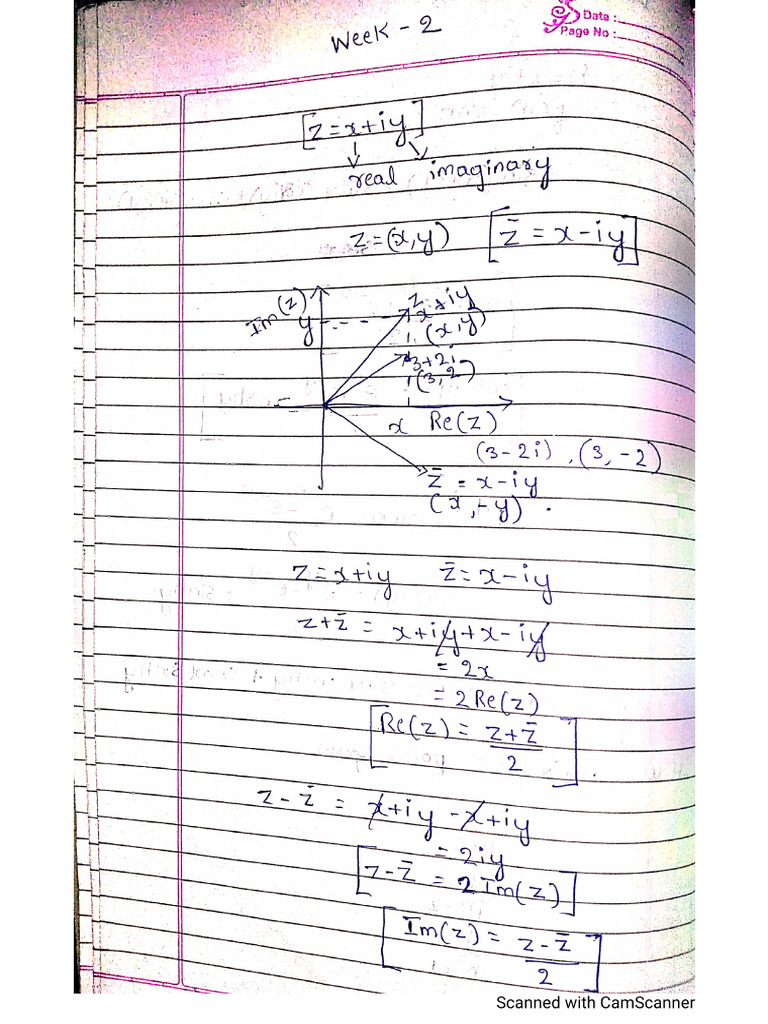 Date :
Page No :
Week - 2
[z = x+iy]
real imaginary
z = (x,y) [z̄ = x-iy]
Im(z)
y
z
x+iy
(x,y)
3+2i
(3,2)
x Re(z)
(3-2i), (3,-2)
z̄ = x-iy
(x,-y).
z = x+iy z̄ = x-iy
z+z̄ = x+iy+x-iy
= 2x
= 2Re(z)
[Re(z) = z+z̄/2]
z-z̄ = x+iy-x+iy
= 2iy
[z-z̄ = 2Im(z)]
[Im(z) = z-z̄/2]
Scanned with CamScanner